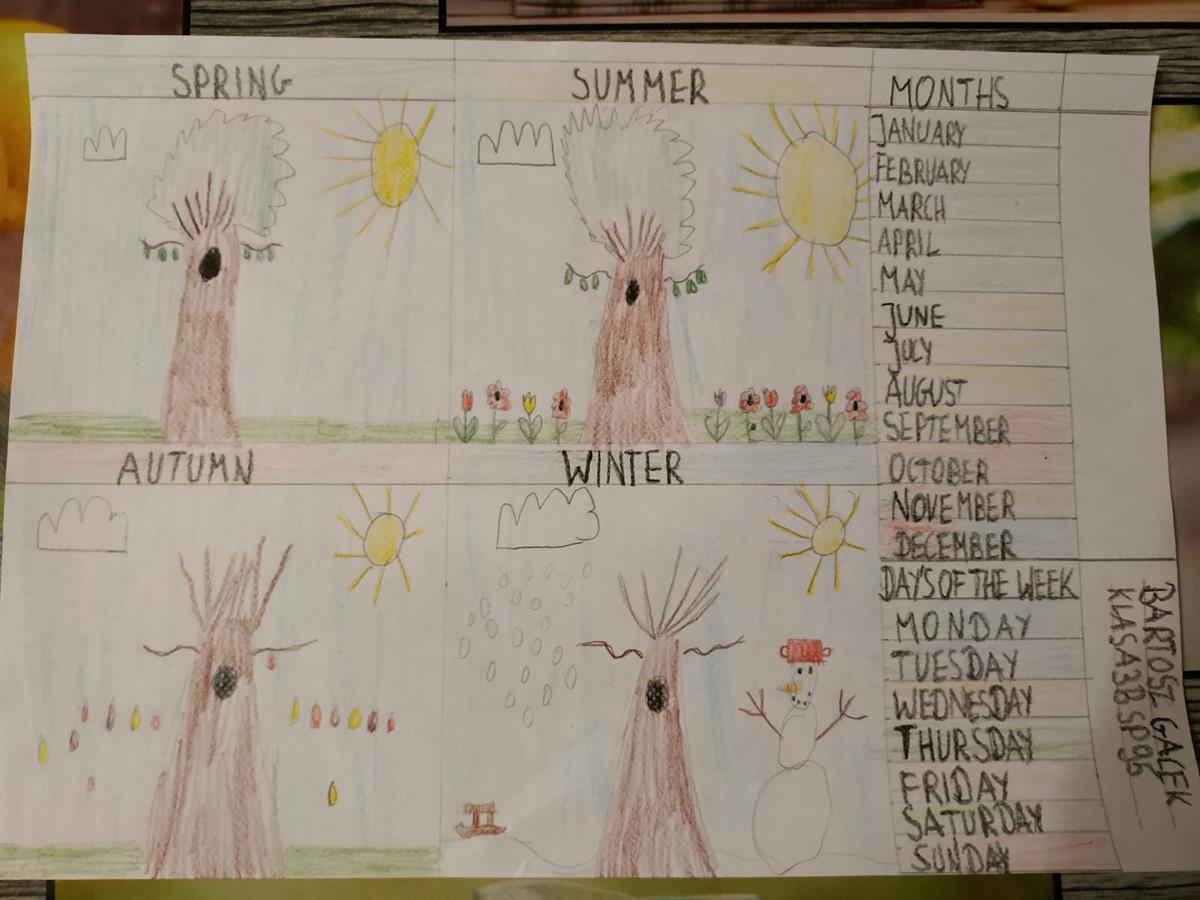 SPRING
SUMMER
AUTUMN
WINTER
MONTHS
JANUARY
FEBRUARY
MARCH
APRIL
MAY
JUNE
JULY
AUGUST
SEPTEMBER
OCTOBER
NOVEMBER
DECEMBER
DAY'S OF THE WEEK
MONDAY
TUESDAY
WEDNESDAY
THURSDAY
FRIDAY
SATURDAY
SUNDAY
BARTOSZ GACEK
KLASA 3B SP96